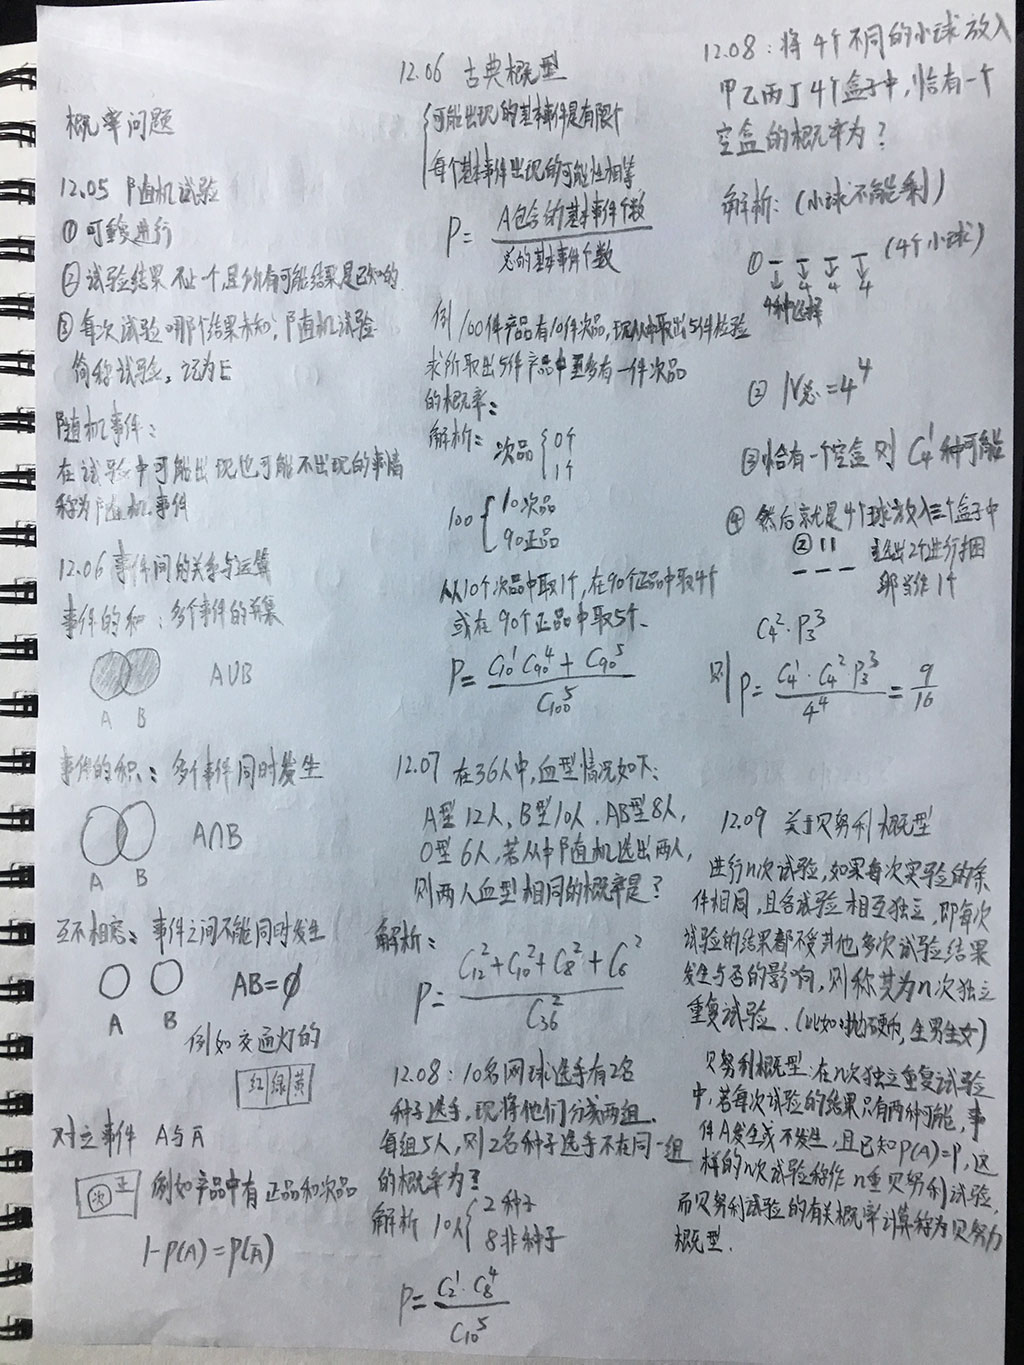 概率问题
12.05 随机试验
① 可重复进行
② 试验结果不止一个,且所有可能结果是已知的
③ 每次试验哪个结果未知,随机试验
简称试验,记为E
随机事件:
在试验中可能出现也可能不出现的事情
称为随机事件
12.06 事件间的关系与运算
事件的和:多个事件的并集
A∪B
A B
事件的积:多个事件同时发生
A∩B
A B
互不相容:事件之间不能同时发生
AB=∅
A B
例如交通灯的
红 绿 黄
对立事件 A与Ā
次 正 例如产品中有正品和次品
1-P(A)=P(Ā)
12.06 古典概型
可能出现的基本事件是有限个
每个基本事件出现的可能性相等
P= A包含的基本事件个数
总的基本事件个数
例 100件产品有10件次品,现从中取出5件检验
求所取出5件产品中至多有一件次品
的概率:
解析:次品 0个
1个
100 10次品
90正品
从10个次品中取1个,在90个正品中取4个
或在90个正品中取5个.
P= (C₁₀¹C₉₀⁴+C₉₀⁵)/C₁₀₀⁵
12.07 在36人中,血型情况如下:
A型12人,B型10人,AB型8人,
O型6人,若从中随机选出两人,
则两人血型相同的概率是?
解析:
P= (C₁₂²+C₁₀²+C₈²+C₆²)/C₃₆²
12.08:10名网球选手有2名
种子选手,现将他们分成两组.
每组5人,则2名种子选手不在同一组
的概率为?
解析 10人 2种子
8非种子
P= (C₂¹·C₈⁴)/C₁₀⁵
12.08:将4个不同的小球放入
甲乙丙丁4个盒子中,恰有一个
空盒的概率为?
解析:(小球不能剩)
① (4个小球)
4 4 4
4种选择
② N总=4⁴
③ 恰有一个空盒则C₄¹种可能
④ 然后就是4个球放入三个盒子中
② 1 1 选出2个进行捆
那当作1个
C₄²·P₃³
则P= (C₄¹·C₄²P₃³)/4⁴ = 9/16
12.09 关于贝努利概型
进行n次试验,如果每次实验的条
件相同,且各试验相互独立,即每次
试验的结果都不受其他多次试验结果
发生与否的影响,则称其为n次独立
重复试验.(比如:抛硬币,生男生女)
贝努利概型:在n次独立重复试验
中,若每次试验的结果只有两种可能,事
件A发生或不发生,且已知P(A)=P,这
样的n次试验称作n重贝努利试验,
而贝努利试验的有关概率计算称为贝努力
概型.